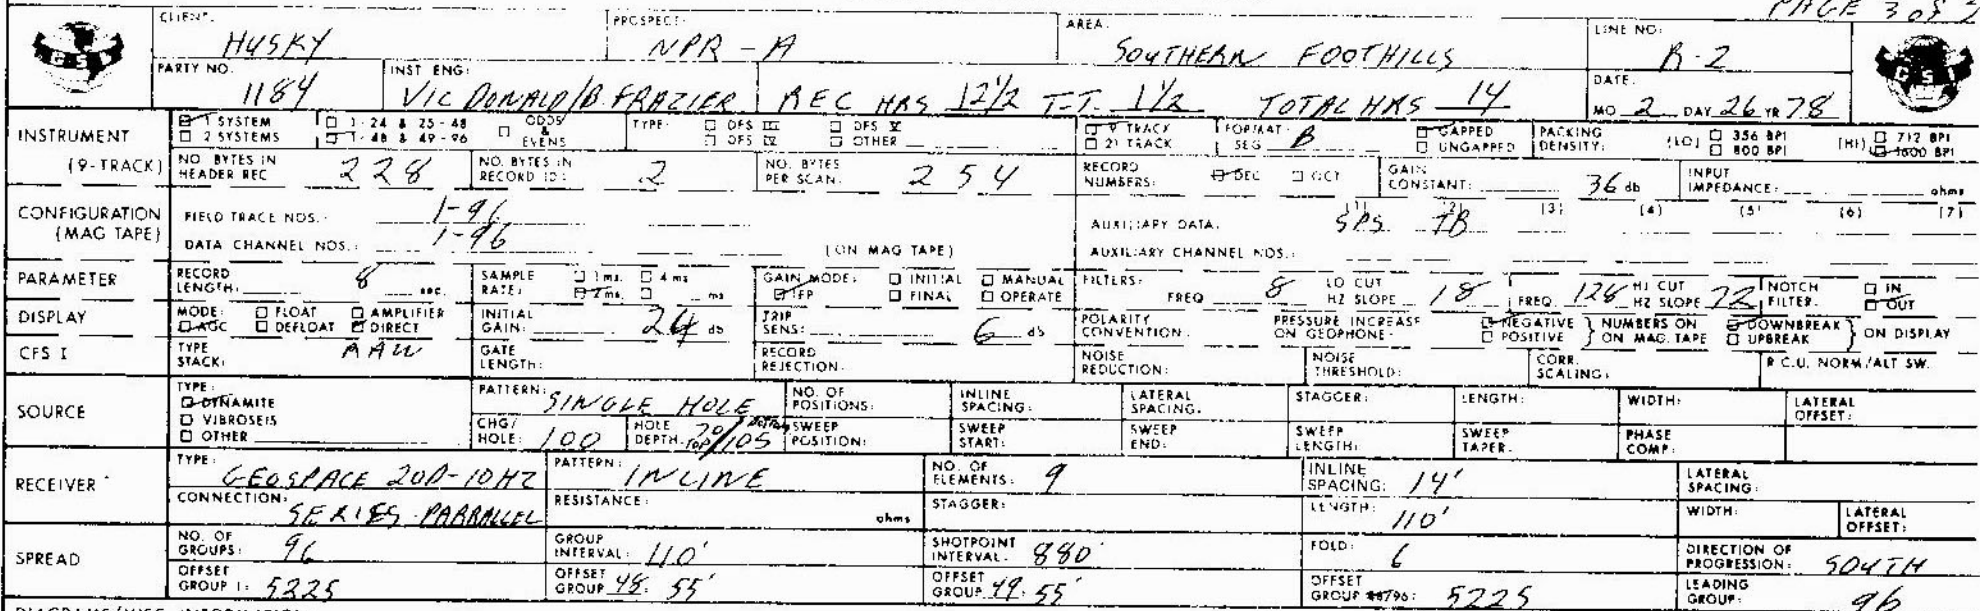 PAGE 3 of 2
CLIENT: HUSKY PROSPECT: NPR-A AREA: SOUTHERN FOOTHILLS LINE NO: R-2
GSI GSI
PARTY NO. 1184 INST ENG: VIC DONALD/B. FRAZIER REC HRS 12 1/2 T.T. 1 1/2 TOTAL HRS 14 DATE: MO 2 DAY 26 YR 78
INSTRUMENT 1 SYSTEM 1-24 & 25-48 ODDS & EVENS TYPE: DFS III DFS V 9 TRACK FORMAT: SEG B GAPPED PACKING DENSITY: (LO) 356 BPI (HI) 712 BPI
2 SYSTEMS 1-48 & 49-96 DFS IV OTHER 21 TRACK UNGAPPED 800 BPI 1600 BPI
(9-TRACK) NO. BYTES IN HEADER REC 228 NO. BYTES IN RECORD ID: 2 NO. BYTES PER SCAN: 254 RECORD NUMBERS: DEC OCT GAIN CONSTANT: 36 db INPUT IMPEDANCE: ohms
CONFIGURATION (MAG TAPE) FIELD TRACE NOS.: 1-96 AUXILIARY DATA: (1) SPS (2) TB (3) (4) (5) (6) (7)
DATA CHANNEL NOS.: 1-96 (ON MAG TAPE) AUXILIARY CHANNEL NOS.:
PARAMETER RECORD LENGTH: 8 sec. SAMPLE RATE: 1 ms. 4 ms 2 ms. ms GAIN MODE: INITIAL MANUAL IFP FINAL OPERATE FILTERS: FREQ 8 LO CUT HZ SLOPE 18 FREQ. 128 HI CUT HZ SLOPE 72 NOTCH FILTER: IN OUT
DISPLAY MODE: FLOAT AMPLIFIER AGC DEFLOAT DIRECT INITIAL GAIN: 24 db TRIP SENS: 6 db POLARITY CONVENTION: PRESSURE INCREASE ON GEOPHONE: NEGATIVE POSITIVE } NUMBERS ON MAG. TAPE DOWNBREAK UPBREAK } ON DISPLAY
CFS I TYPE STACK: RAW GATE LENGTH: RECORD REJECTION: NOISE REDUCTION: NOISE THRESHOLD: CORR. SCALING: R.C.U. NORM/ALT SW.
SOURCE TYPE: DYNAMITE PATTERN: SINGLE HOLE NO. OF POSITIONS: INLINE SPACING: LATERAL SPACING: STAGGER: LENGTH: WIDTH: LATERAL OFFSET:
VIBROSEIS OTHER CHG/HOLE: 100 HOLE DEPTH: 70 TOP/105 BOTTOM SWEEP POSITION: SWEEP START: SWEEP END: SWEEP LENGTH: SWEEP TAPER: PHASE COMP:
RECEIVER TYPE: GEOSPACE 20D-10HZ PATTERN: INLINE NO. OF ELEMENTS: 9 INLINE SPACING: 14' LATERAL SPACING:
CONNECTION: SERIES-PARRALLEL RESISTANCE: ohms STAGGER: LENGTH: 110' WIDTH: LATERAL OFFSET:
SPREAD NO. OF GROUPS: 96 GROUP INTERVAL: 110' SHOTPOINT INTERVAL: 880' FOLD: 6 DIRECTION OF PROGRESSION: SOUTH
OFFSET GROUP 1: 5225 OFFSET GROUP 48: 55' OFFSET GROUP 49: 55' OFFSET GROUP 96: 5225 LEADING GROUP: 96